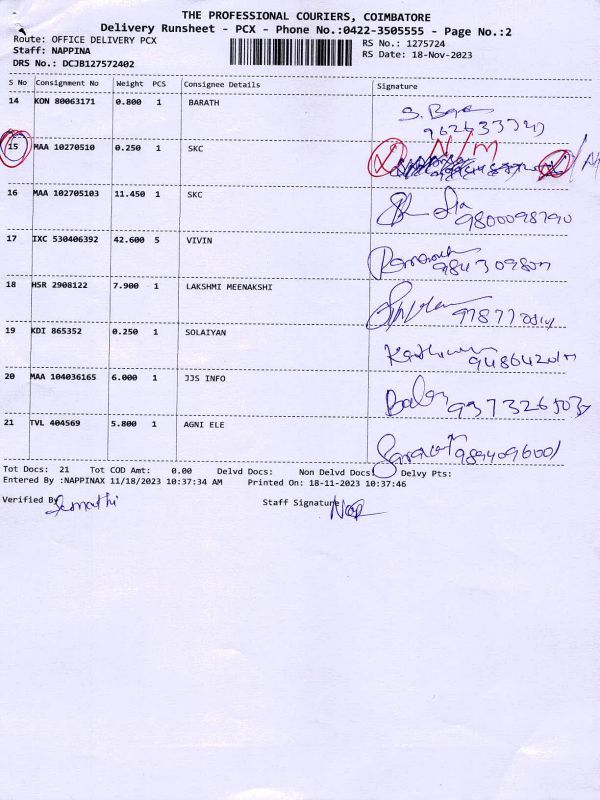 THE PROFESSIONAL COURIERS, COIMBATORE
Delivery Runsheet - PCX - Phone No.:0422-3505555 - Page No.:2
Route: OFFICE DELIVERY PCX RS No.: 1275724
Staff: NAPPINA RS Date: 18-Nov-2023
DRS No.: DCJB127572402
S No Consignment No Weight PCS Consignee Details Signature
14 KON 80063171 0.800 1 BARATH
15 MAA 10270510 0.250 1 SKC N/M
16 MAA 102705103 11.450 1 SKC
9800098790
17 IXC 530406392 42.600 5 VIVIN
18 HSR 2908122 7.900 1 LAKSHMI MEENAKSHI
19 KDI 865352 0.250 1 SOLAIYAN
20 MAA 104036165 6.000 1 JJS INFO
21 TVL 404569 5.800 1 AGNI ELE
Tot Docs: 21 Tot COD Amt: 0.00 Delvd Docs: Non Delvd Docs: Delvy Pts:
Entered By :NAPPINAX 11/18/2023 10:37:34 AM Printed On: 18-11-2023 10:37:46
Verified By Staff Signature